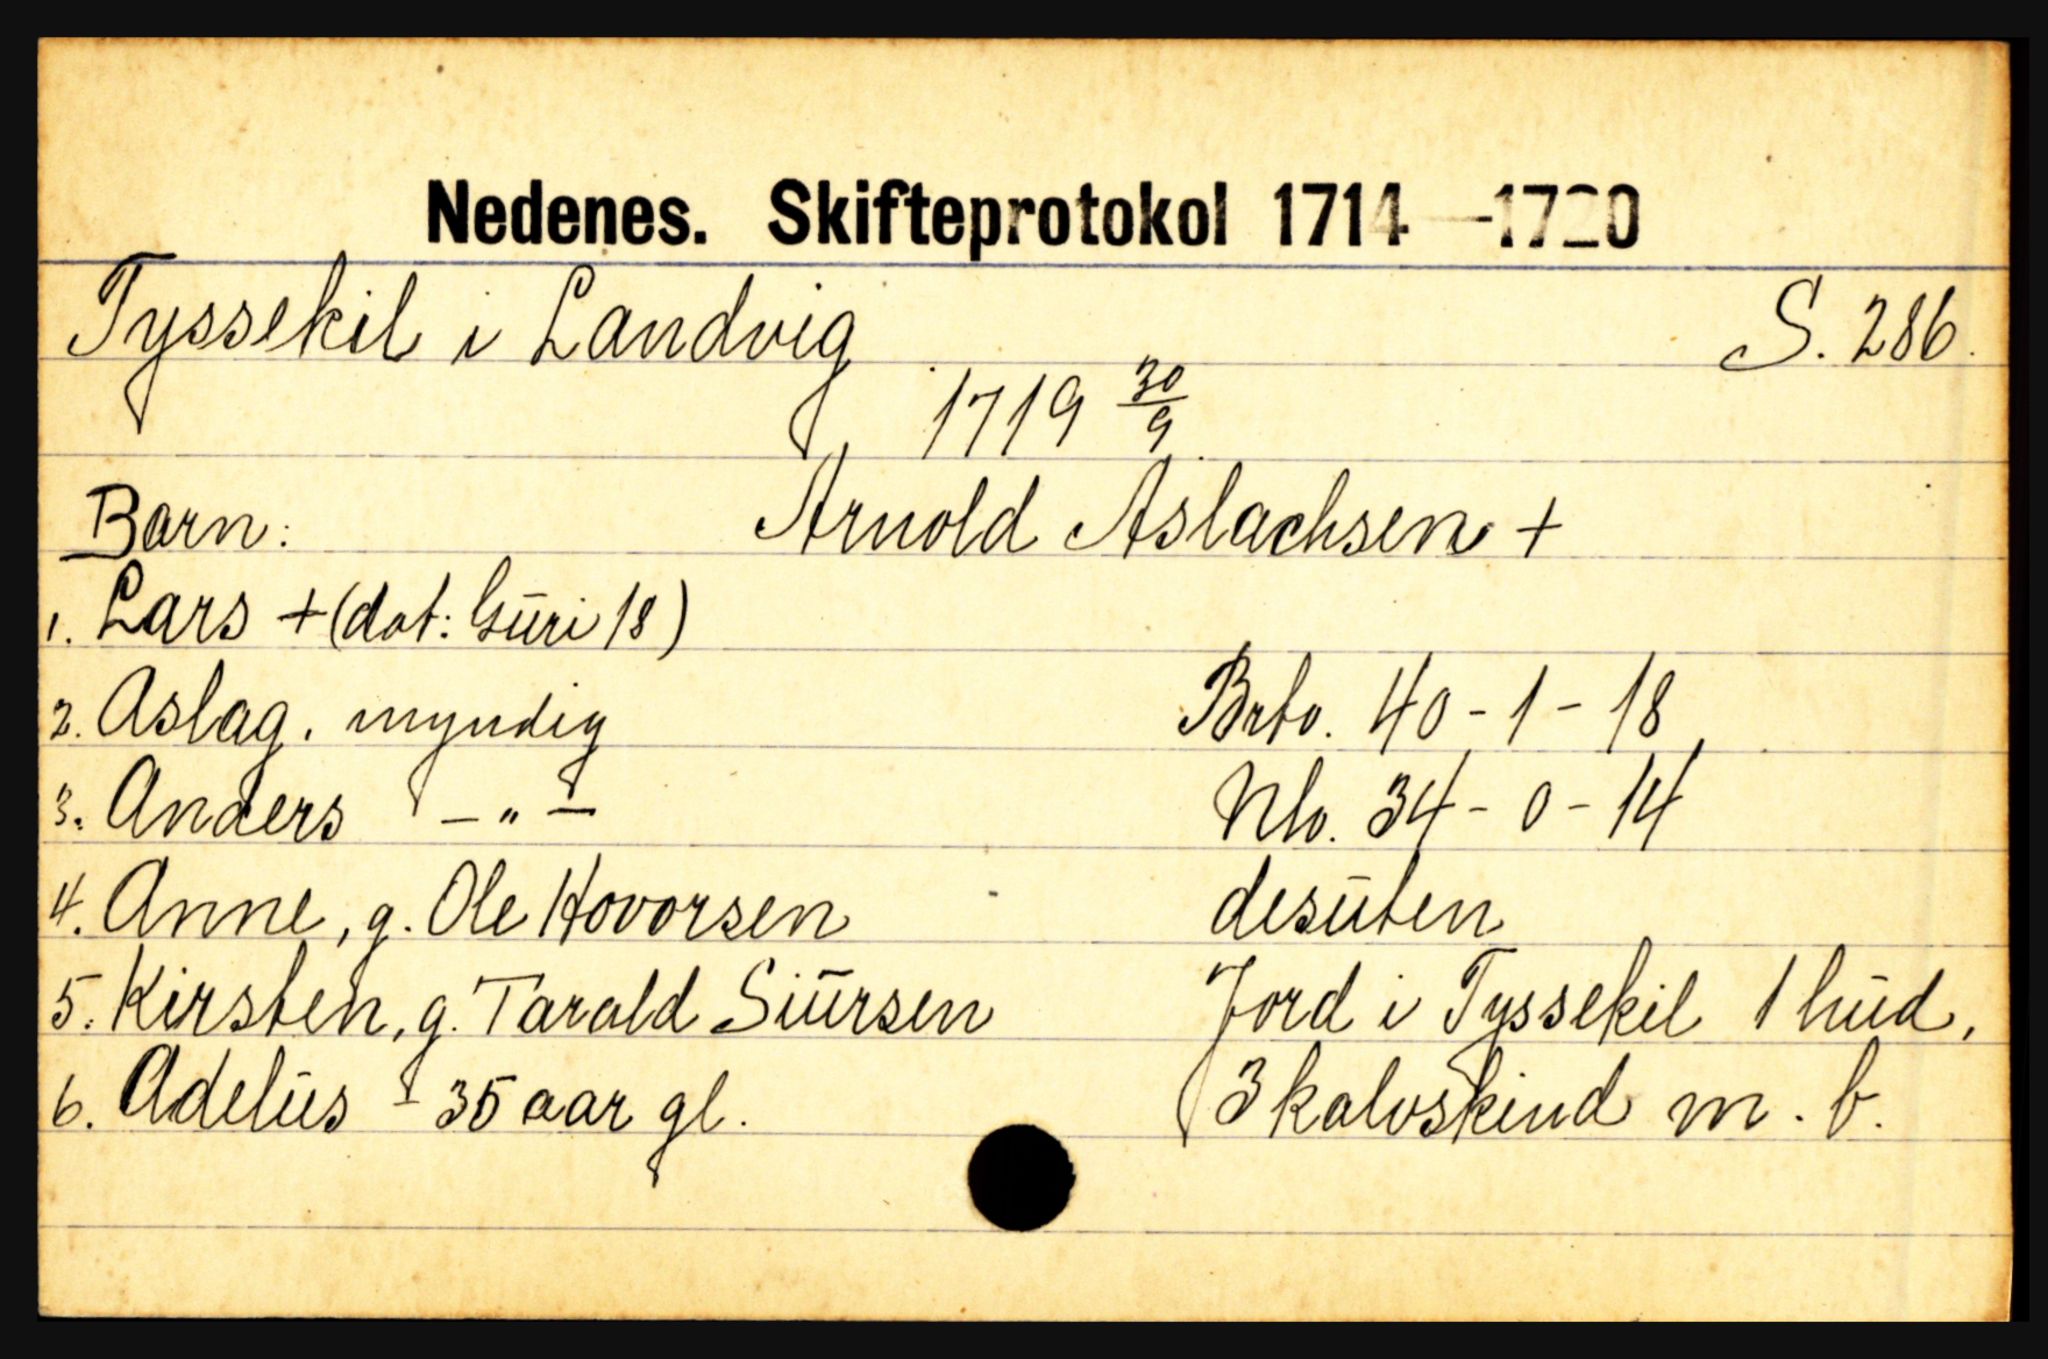 Nedenes. Skifteprotokol 1714—1720
Tyssekil i Landvig S. 286.
1719 30/9
Barn: Arnold Aslachsen +
1. Lars + (dat: Gūri 18)
2. Aslag. myndig Brto. 40-1-18
3. Anders — " — Nto. 34-0-14
4. Anne, g. Ole Hovorsen desūten
5. Kirsten, g. Tarald Siūrsen Jord i Tyssekil 1 hūd,
6. Adelūs - 35 aar gl. 3 kalvskind m. b.